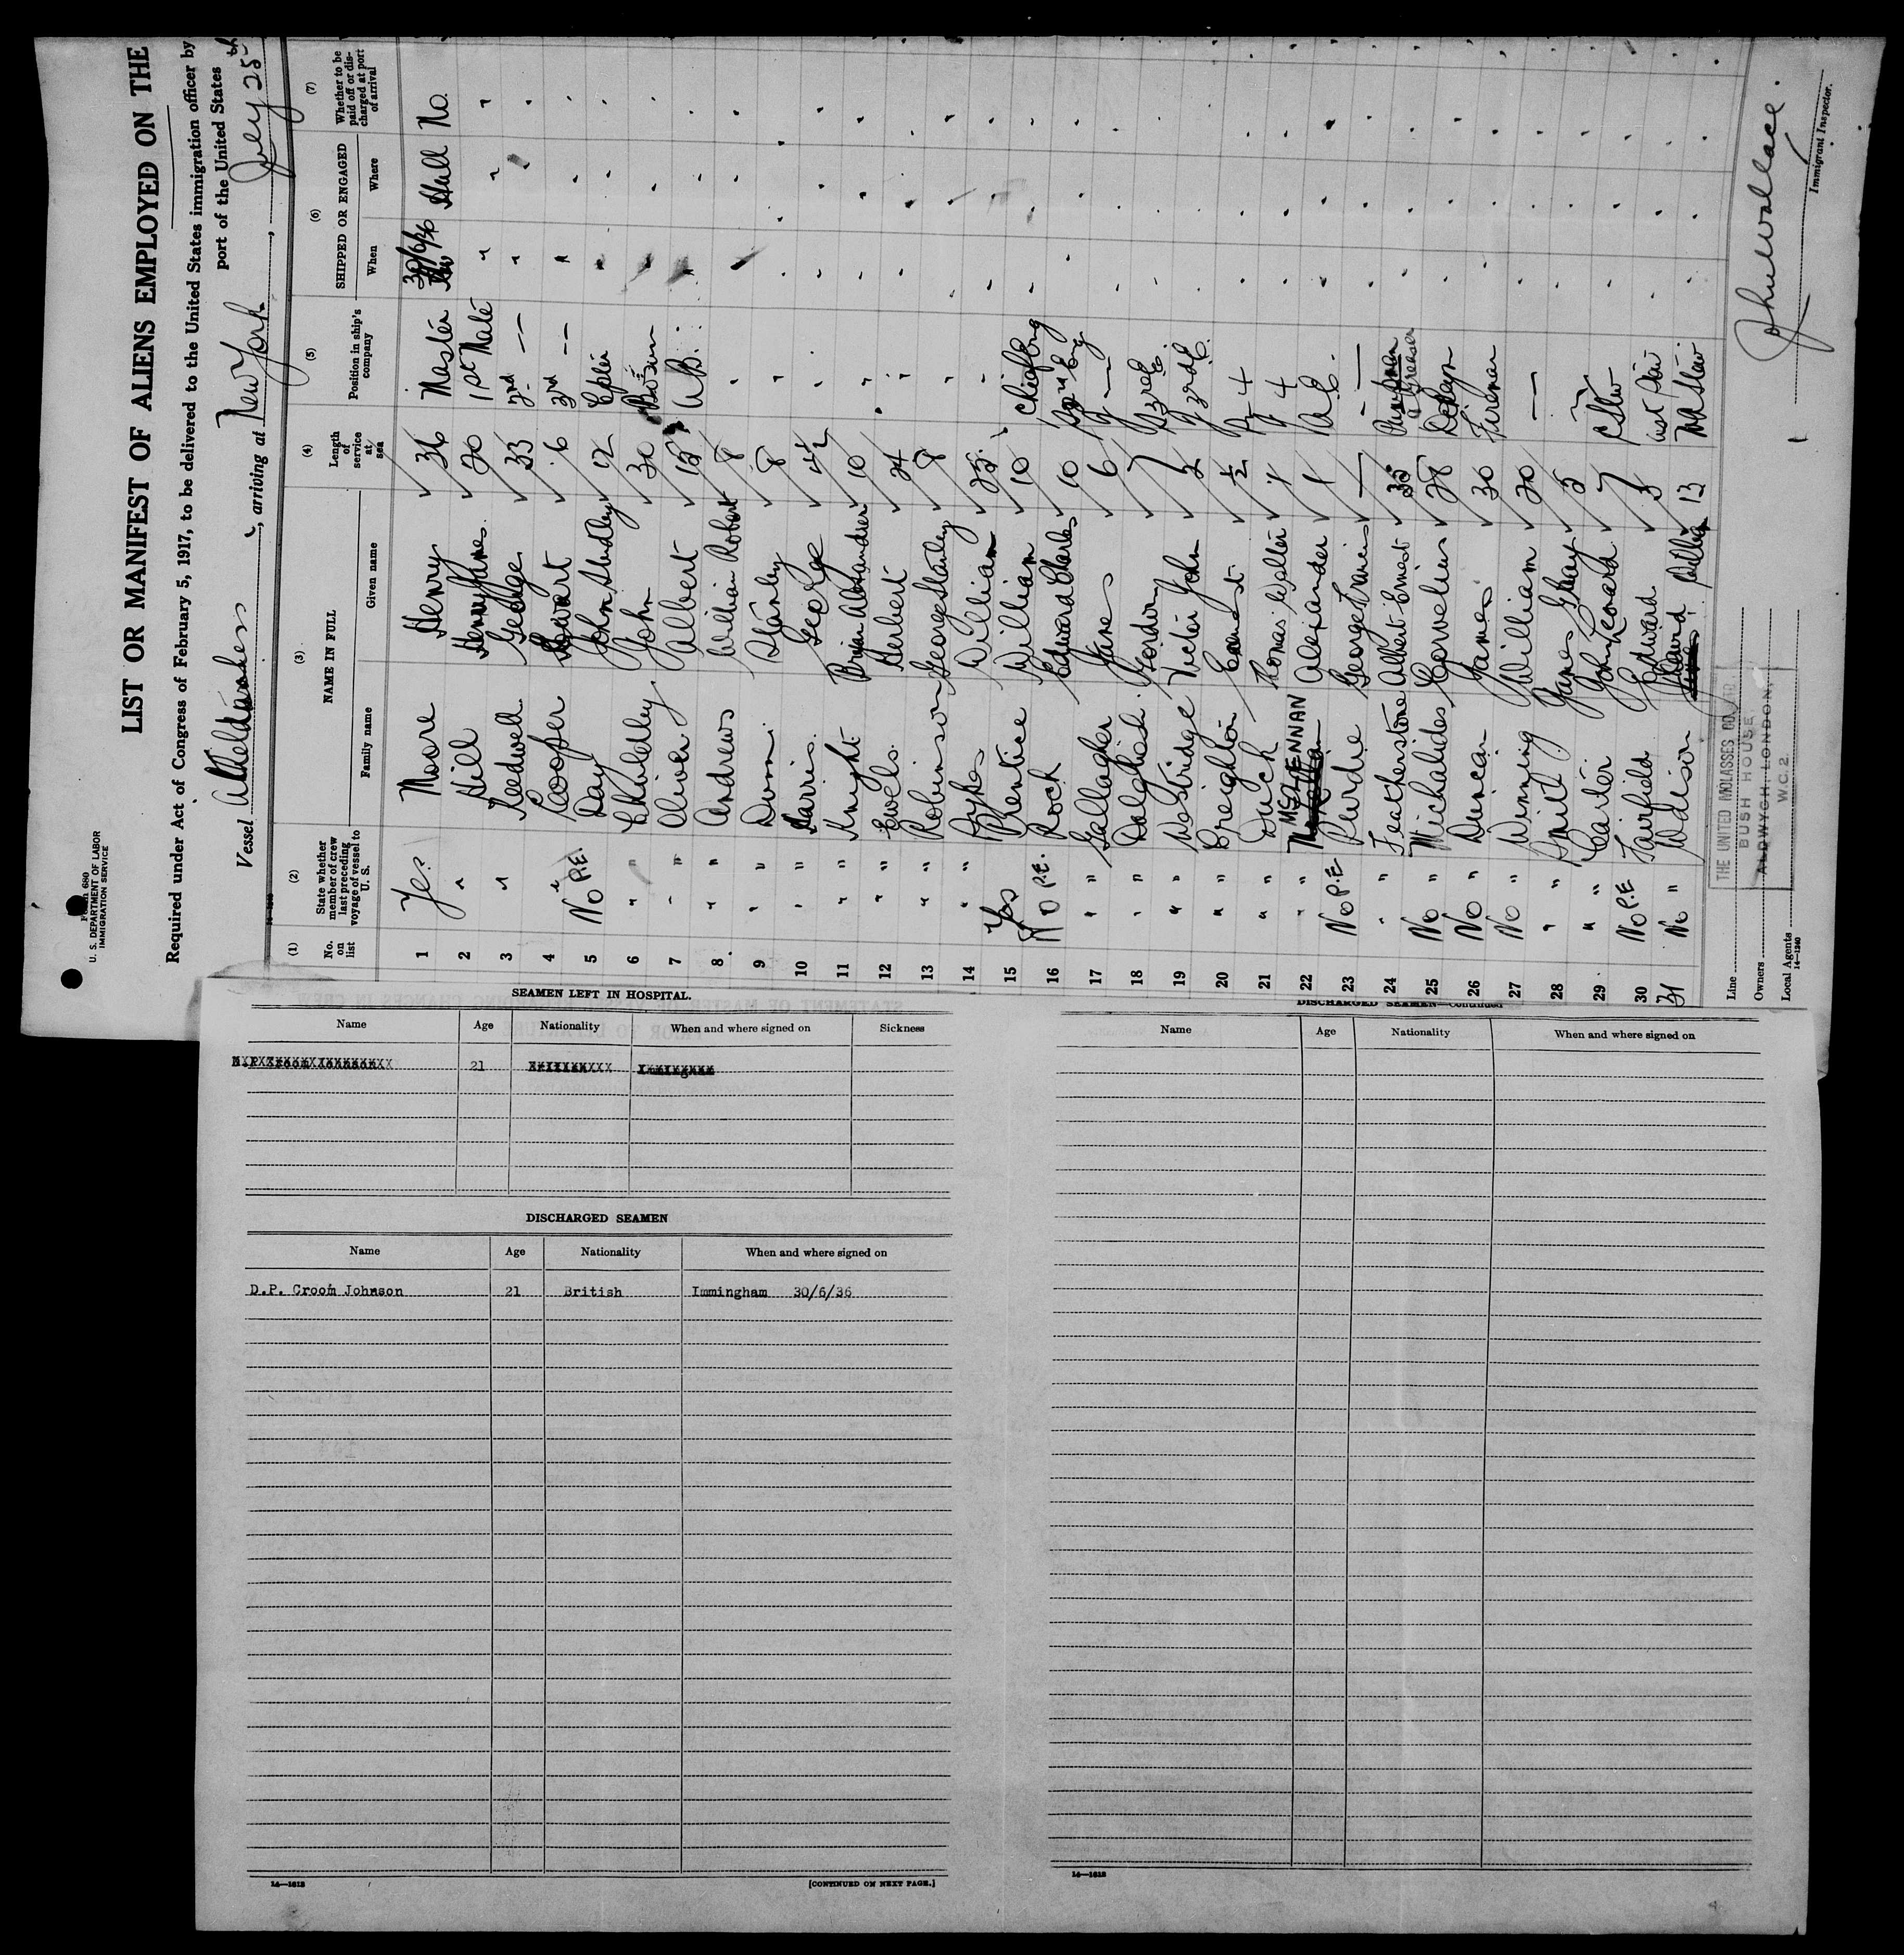 Form 680
U. S. DEPARTMENT OF LABOR
IMMIGRATION SERVICE
LIST OR MANIFEST OF ALIENS EMPLOYED ON THE
Required under Act of Congress of February 5, 1917, to be delivered to the United States immigration officer by
port of the United States
Vessel Atheltemplar, arriving at New York, July 25th
(1) (2) (3) (4) (5) (6) (7)
No. on list
State whether member of crew last preceding voyage of vessel to U. S.
NAME IN FULL
Family name Given name
Length of service at sea
Position in ship's company
SHIPPED OR ENGAGED
When Where
Whether to be paid off or discharged at port of arrival
1 Yes Moore Henry 36 Master 30/6/36 Hull No.
2 " Hill Henry James 20 1st Mate " " "
3 " Kedwell George 33 2nd — " " "
4 " Cooper 6 3rd — " " "
5 No P.E. Day John Studley 12 " " "
6 " " Chuldley John 30 Bosun " " "
7 " " Oliver Albert 15 A.B. " " "
8 " " Andrews William Robert 8 " " " "
9 " " Stanley 8 " " " "
10 " " Harris George 4½ " " " "
11 " " Knight Brian Alexander 10 " " " "
12 " " Ewels Herbert 24 " " " "
13 " " Robinson George Stanley 8 " " " "
14 " " Sykes William 25 " " " "
15 Yes Prentice William 10 Chief Eng " " "
16 No P.E. Rock Edward Charles 10 2nd Eng " " "
17 " " Gallagher James 6 — " " "
18 " " Dalgliesh Gordon 7 3rd E. " " "
19 " " Westridge Victor John 3rd E. " " "
20 " " Creighton Ernest ½ 4 " " "
21 " " Duck Thomas Walter 4 " " "
22 " " McLENNAN Alexander 1 " " "
23 No P.E Purdie George Francis — — " " "
24 " " Featherstone Albert Ernest 35 Pumpman a Greaser " " "
25 No " Michalides Cornelius 28 " " "
26 No " Duncan James 30 Fireman " " "
27 No " Winning William 20 — " " "
28 " " Smith James Gray 5 " " "
29 " " Carter John Leonard 7 C Stew " " "
30 No P.E Fairfield Edward 3 asst Stew " " "
31 No " Addison William 13 " " "
Line
Owners
Local Agents
14—1240
THE UNITED MOLASSES CO. LTD.,
BUSH HOUSE,
ALDWYCH, LONDON,
W.C.2.
John Wallace.
Immigrant Inspector.
SEAMEN LEFT IN HOSPITAL.
Name Age Nationality When and where signed on Sickness
D.P. Croom Johnson 21 British Immingham
DISCHARGED SEAMEN
Name Age Nationality When and where signed on
D.P. Croom Johnson 21 British Immingham 30/6/36
14—1618
[CONTINUED ON NEXT PAGE.]
DISCHARGED SEAMEN—Continued
Name Age Nationality When and where signed on
14—1618